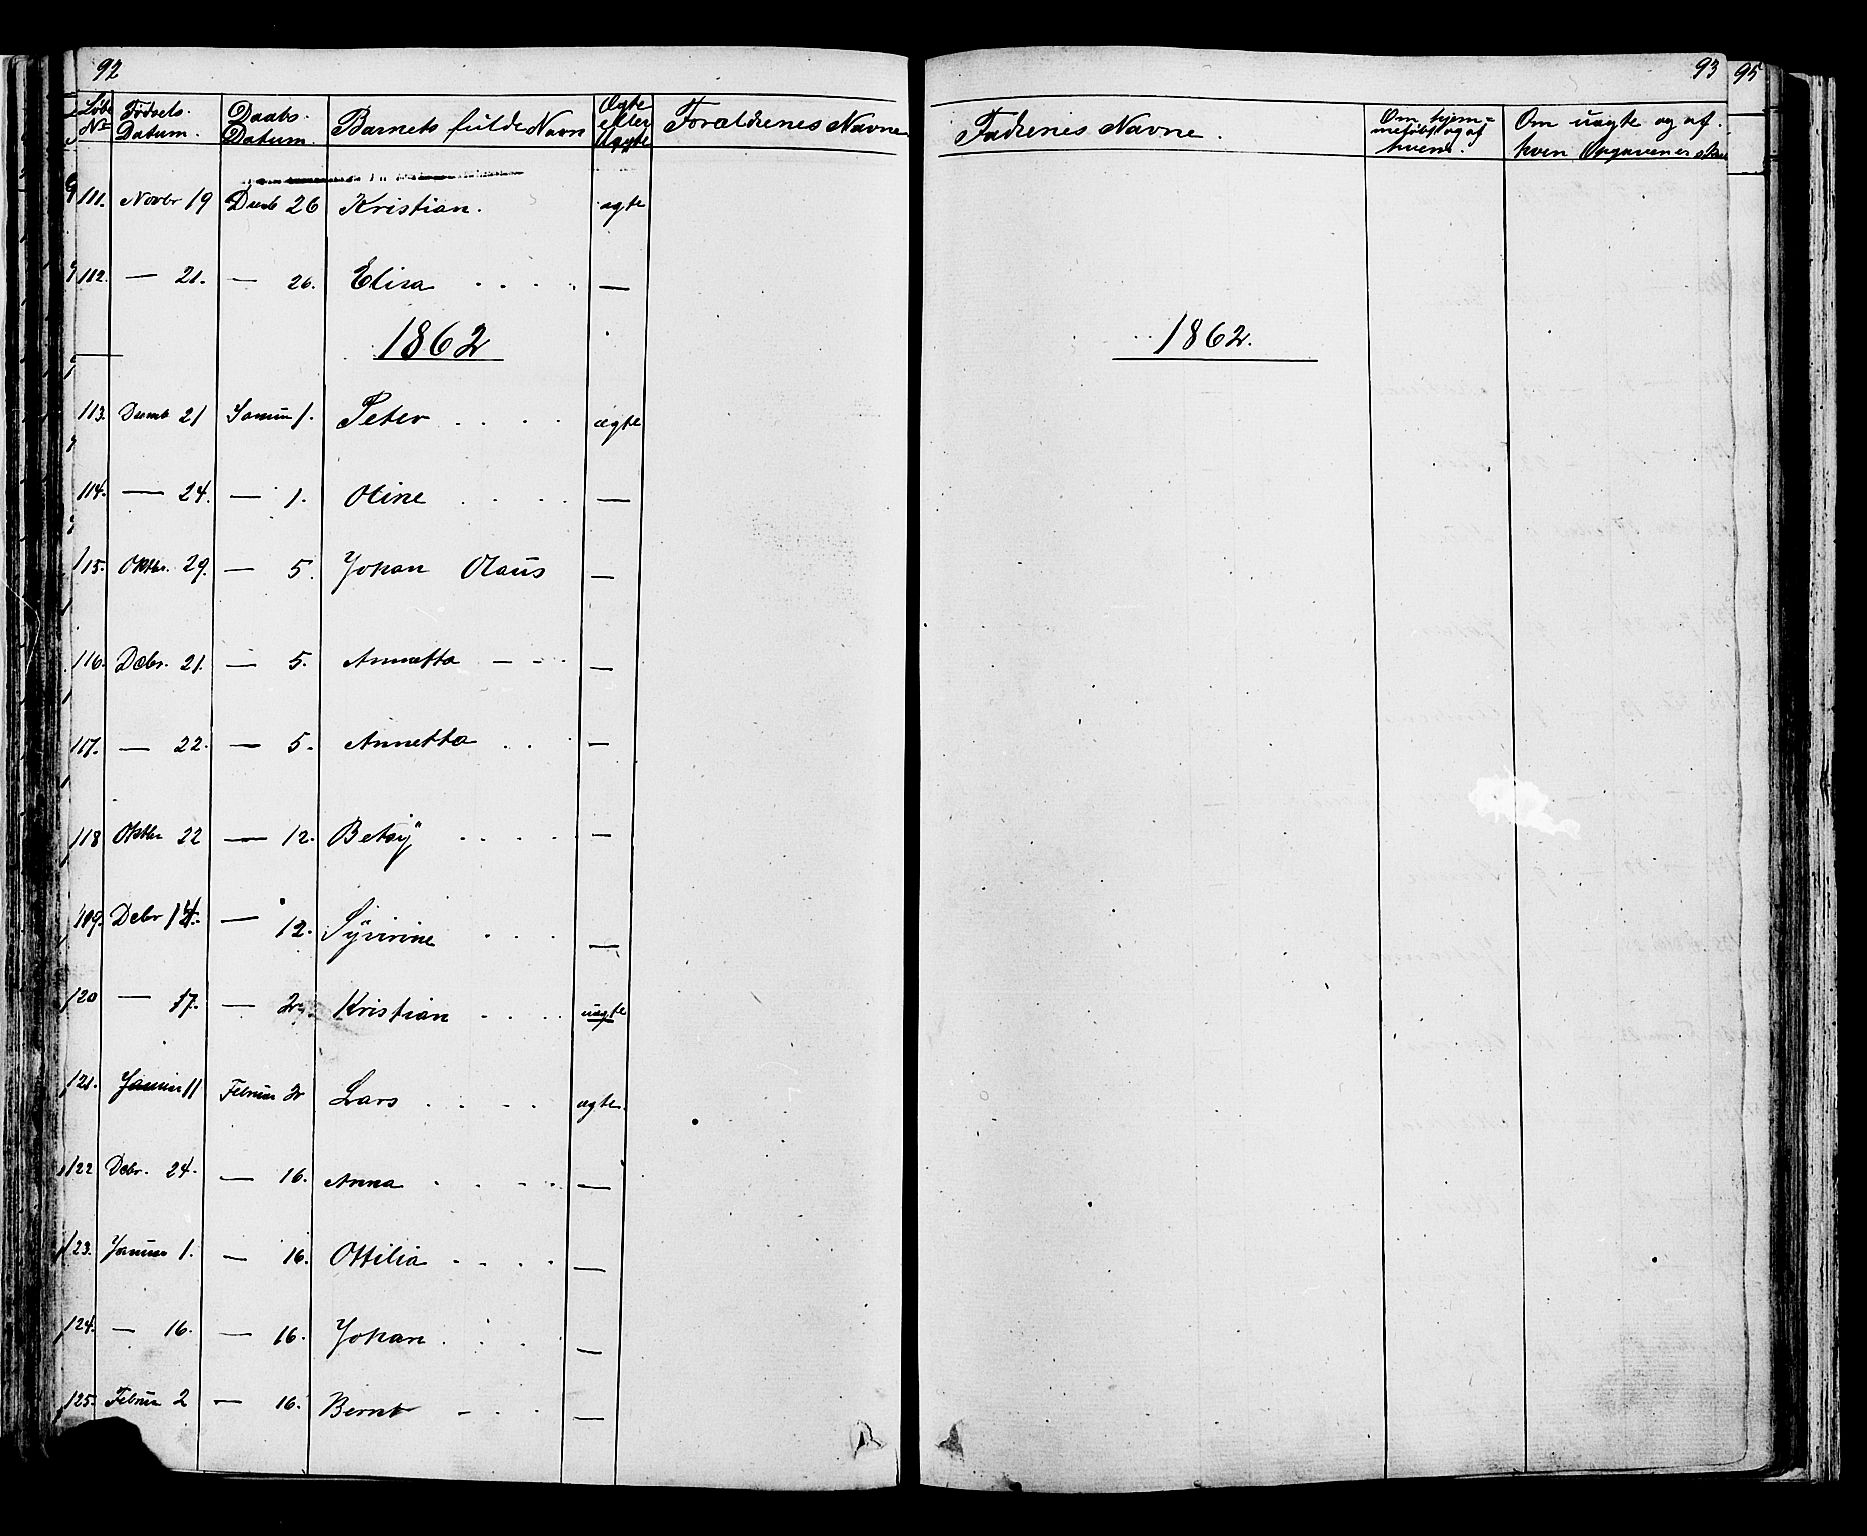 92
Løbe Fødsels- Daabs- Barnets fulde Navn Ægte Forældrenes Navne
No Datum. Datum. eller
Uægte
111. Novbr 19 Decb 26 Kristian. ægte
112. — 21. — 26. Elisa . . . . —
1862
113. Decmb 21 Januar 1. Peter . . . . ægte
114. — 24. — 1. Oline . . . . —
115. Oktbr. 29. — 5. Johan Olaus —
116. Decbr. 21. — 5. Annetta - - - —
117. — 22. — 5. Annetta . . . —
118 Oktbr 22 — 12. Betsy . . . . —
119. Debr 14. — 12. Syvirine . . . —
120 — 17. — Kristian . . . . uægte
121. Januar 11 Februar 2 Lars . . . . ægte.
122 Debr. 24. — 16. Anna . . . . —
123. Januar 1. — 16. Ottilia - - - - —
124. — 16. — 16. Johan . . . —
125. Februar 2 — 16. Bernt - - - —
93 95
Fadrenes Navne. Om hjem= Om uægte og af
medøbt og af hven Opgaven er skeet
hvem.
1862.